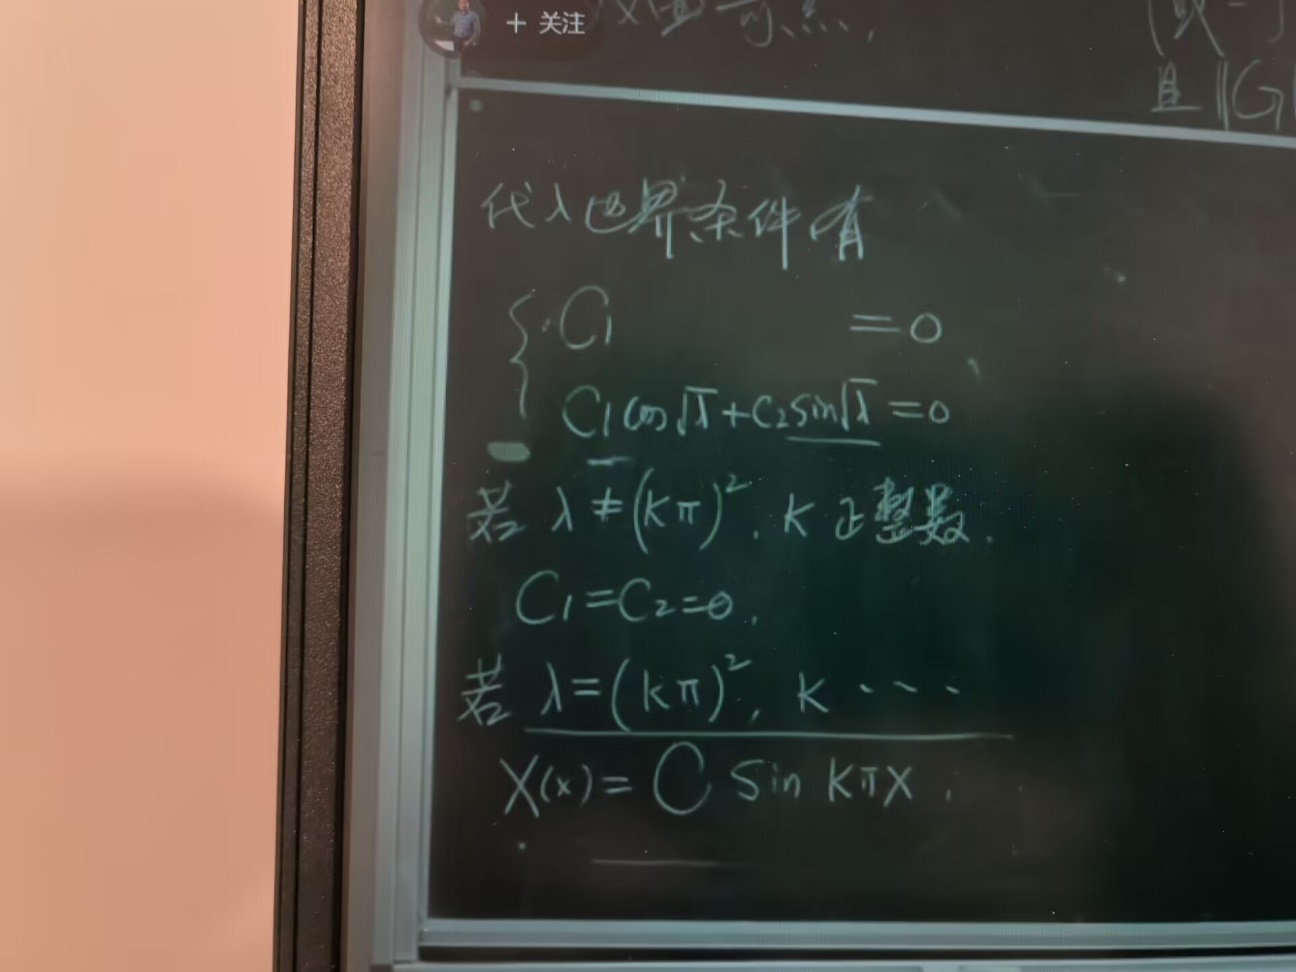 + 关注
且 ||G
代入边界条件有
C₁ = 0
C₁ cos√λ + C₂ sin√λ = 0
若 λ ≠ (kπ)², k 正整数.
C₁ = C₂ = 0.
若 λ = (kπ)², k ...
X(x) = C sin kπx.